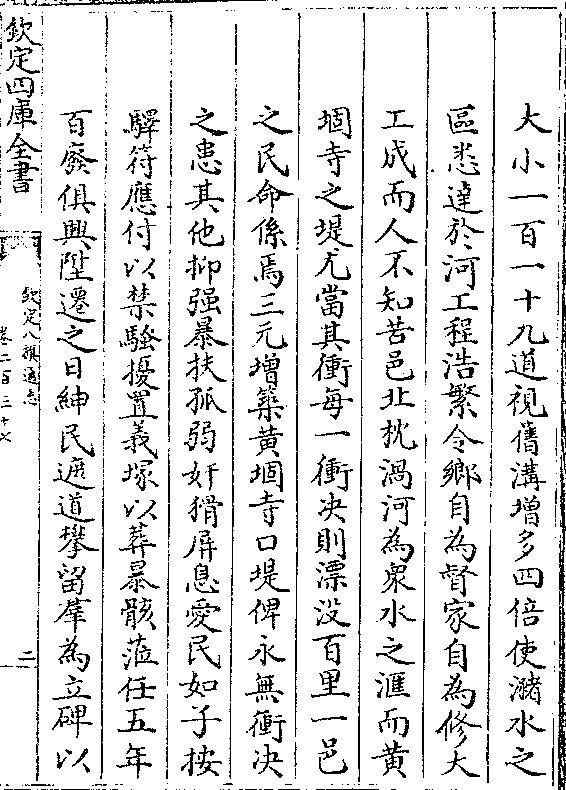 大小一百一十九道視舊溝增多四倍使瀦水之
區悉達於河工程浩繁令鄉自為督家自為修大
工成而人不知苦邑北枕渦河為衆水之滙而黄
堌寺之堤尤當其衝每一衝决則漂没百里一邑
之民命係焉三元增築黄堌寺口堤俾永無衝决
之患其他抑强暴扶孤弱奸猾屏息愛民如子按
驛符應付以禁騷擾置義塚以葬暴骸蒞任五年
百廢俱興陞遷之日紳民遮道攀留羣為立碑以
欽定四庫全書
欽定八旗通志
卷二百三十七
二